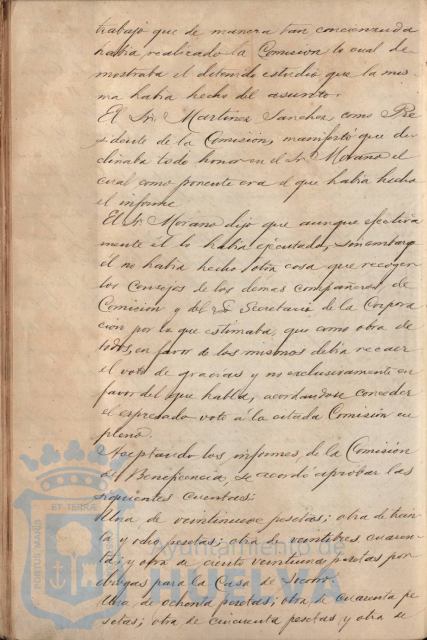 trabajo que de manera tan concienzuda
habia realizado la Comision lo cual de
mostraba el detenido estudio que la mis
ma habia hecho del asunto.
El Sr. Martinez Sanchez como Pre
sidente de la Comision, manifestó que de
clinaba todo honor en el Sr. Morano el
cual como ponente era el que habia hecho
el informe
El Sr. Morano dijo que aunque efectiva
mente él lo habia ejecutado, sin embargo
él no habia hecho otra cosa que recoger
los Consejos de los demas compañeros de
Comision y del Secretario de la Corpora
cion por lo que estimaba, que como obra de
todos, en favor de los mismos debia recaer
el voto de gracias y no exclusivamente en
favor del que habla, acordandose conceder
el espresado voto á la citada Comisión en
pleno.
Aceptando los informes, de la Comisión
de Beneficencia, se acordó aprobar las
siguientes cuentas:
Una de veintinueve pesetas; otra de trein
ta y ocho pesetas; otra de veintitres cuaren
ta; y otra de ciento veintiuna pesetas por
drogas para la Casa de Socorro.
Una de ochenta pesetas; otra de cuarenta pe
setas; otra de cincuenta pesetas y otra de
PORTUS MARIS
ET TERRÆ
Ayuntamiento de
HUELVA